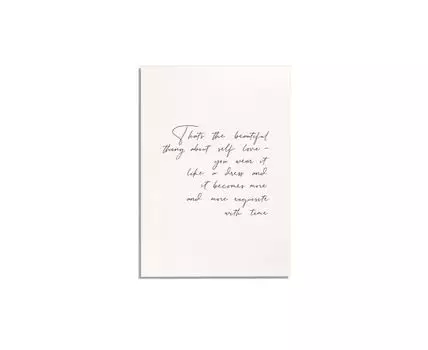 Thats the beautiful
thing about self love -
you wear it
like a dress and
it becomes more
and more exquisite
with time